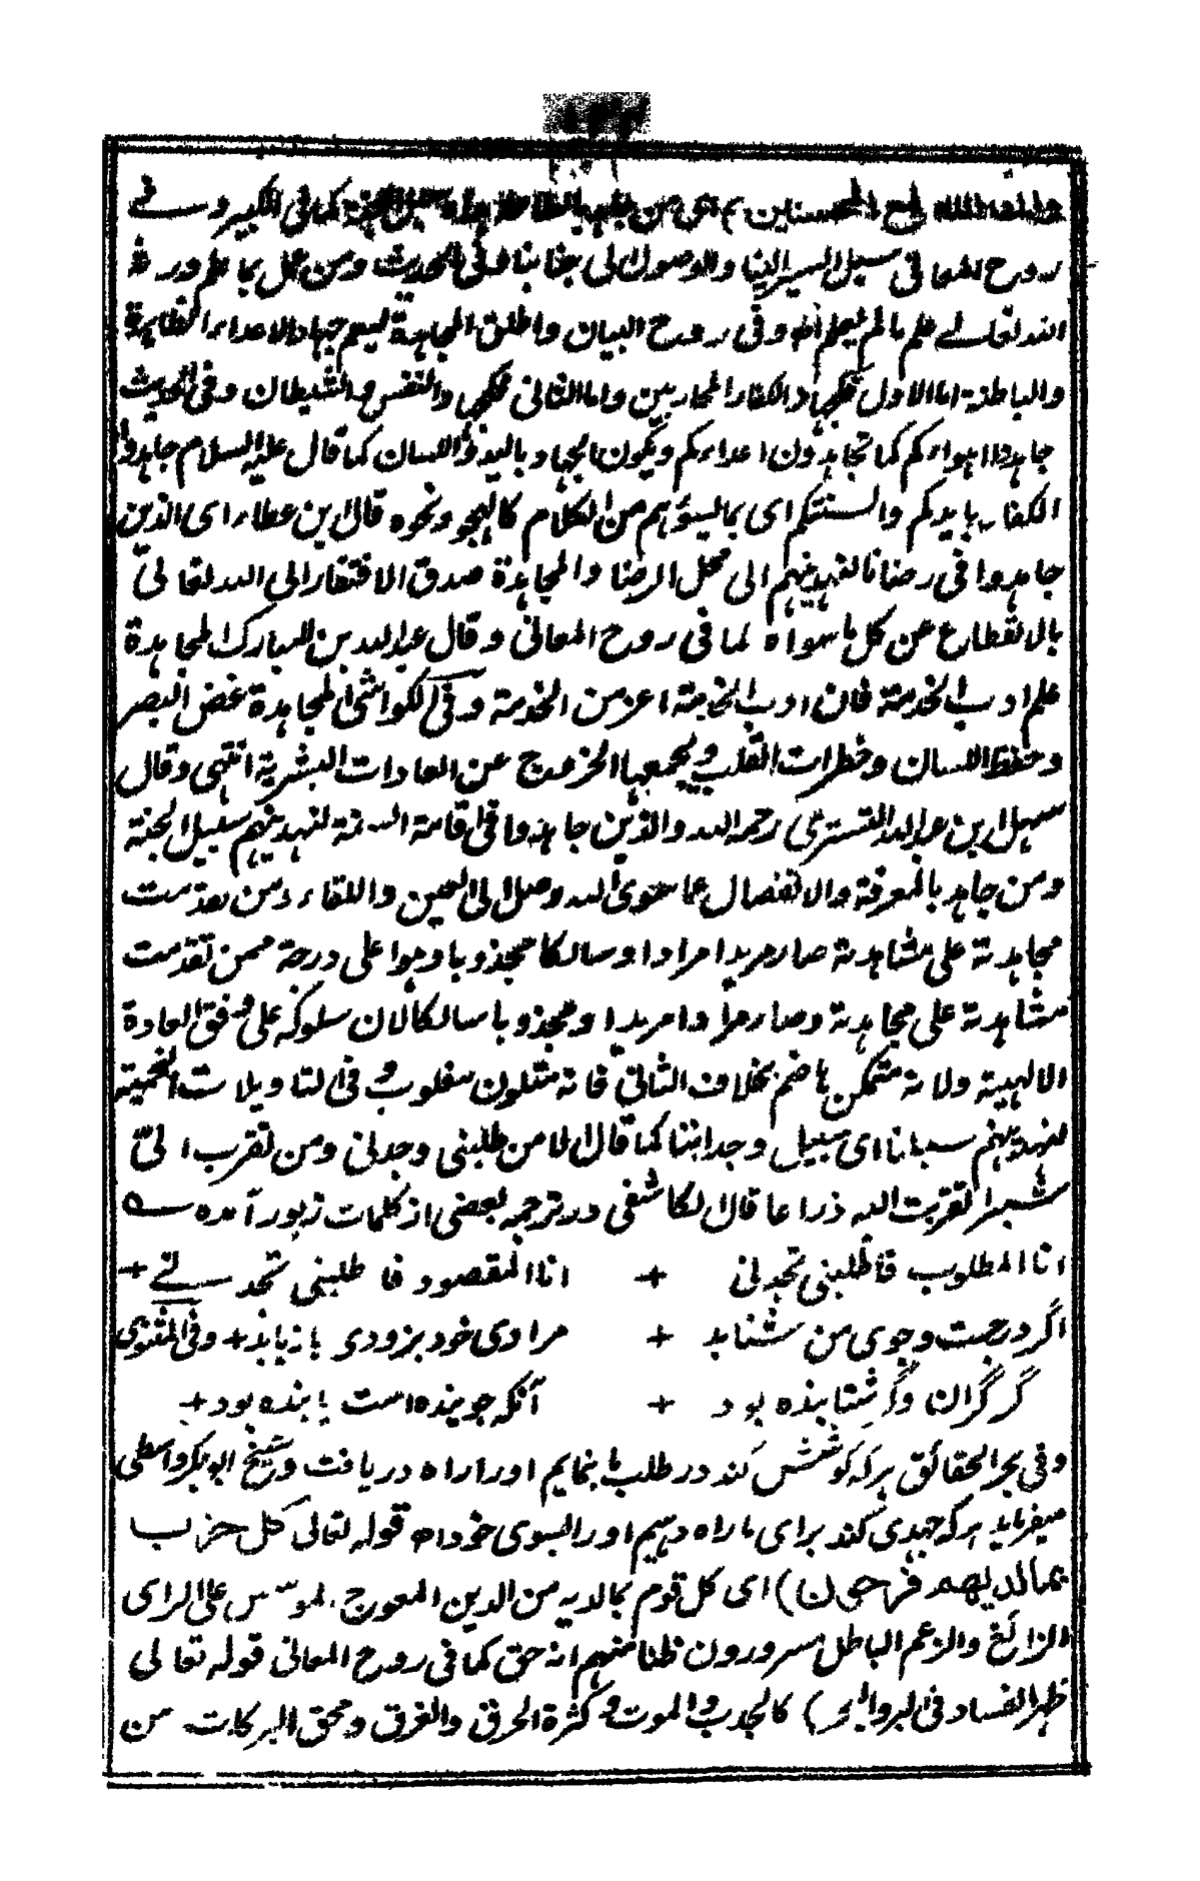 وان الله لمع المحسنين ای من كما فی الكبير و فے
روح المعانی سبيل السير الينا والوصول الی جنابنا وفی الحديث ومن عمل بما علم ورثه
الله تعالے علم ما لم يعلم الخ وفی روح البيان واطلق المجاهدة ليعم جهاد الاعداء الظاهرة
والباطنة اما الاول فكجهاد الكفار المحاربين واما الثانی فكجهاد النفس والشيطان وفی الحديث
جاهدوا اهواءكم كما تجاهدون اعداءكم ويكون الجهاد باليد واللسان كما قال عليه السلام جاهدوا
الكفار بايديكم والسنتكم ای بما يسوؤهم من الكلام كالهجو ونحوه قال ابن عطاء ای الذين
جاهدوا فی رضانا لنهدينهم الی محل الرضا والمجاهدة صدق الافتقار الی الله تعالیٰ
بالانقطاع عن كل ما سواه لما فی روح المعانی وقال عبد الله بن المبارك المجاهدة
علم ادب الخدمة فان ادب الخدمة اعز من الخدمة وفی الكواشی المجاهدة غض البصر
وحفظ اللسان وخطرات القلب ويجمعها الخروج عن العادات البشرية انتهی وقال
سهل ابن عبد الله التستری رحمه الله والذين جاهدوا فی اقامة السنة لنهدينهم سبيل الجنة
ومن جاهد بالمعرفة والانفصال عما سوی الله وصل الی العين واللقاء ومن تقدمت
مجاهدته علی مشاهدته صار مريدا مرادا وسالكا مجذوبا وهو اعلی درجة ممن تقدمت
مشاهدته علی مجاهدته وصار مرادا مريدا ومجذوبا سالكا لان سلوكه علی وفق العادة
الالهية ولانه متمكن هاضم بخلاف الثانی فانه متلون مغلوب وفی التاويلات النجمية
لنهدينهم سبلنا ای سبيل وجداننا كما قال الا من طلبنی وجدنی ومن تقرب الیّ
شبرا تقربت اليه ذراعا قال الكاشفی در ترجمه بعضی از كلمات زبور آمده سه
انا المطلوب فاطلبنی تجدنی + انا المقصود فاطلبنی تجدنے +
اگر در جست وجوی من شتابد + مرادی خود بزودی بازیابد + وفی المثنوی
گر گران وگر شتابنده بود + آنکه جوینده است یابنده بود +
وفی بحر الحقائق هر که کوشش کند در طلب ما بنمایم او را راه دریافت وشیخ ابوبکر واسطی
میفرماید هر که جهدی کند برای ما راه دهیم او را بسوی خود اه قوله تعالی كل حزب
بما لديهم فرحون) ای كل قوم بما لديه من الدين المعوج المؤسس علی الرای
الزائغ والزعم الباطل مسرورون ظنا منهم انه حق كما فی روح المعانی قوله تعالی
ظهر الفساد فی البر والبحر) كالجدب والموت وكثرة الحرق والغرق ومحق البركات من